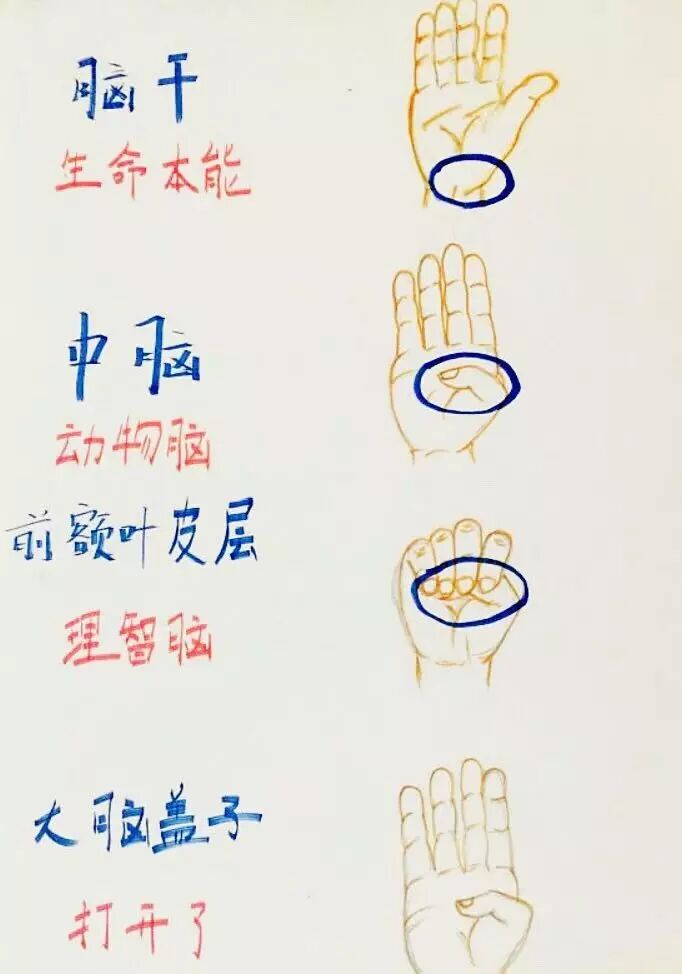 脑干
生命本能
中脑
动物脑
前额叶皮层
理智脑
大脑盖子
打开了